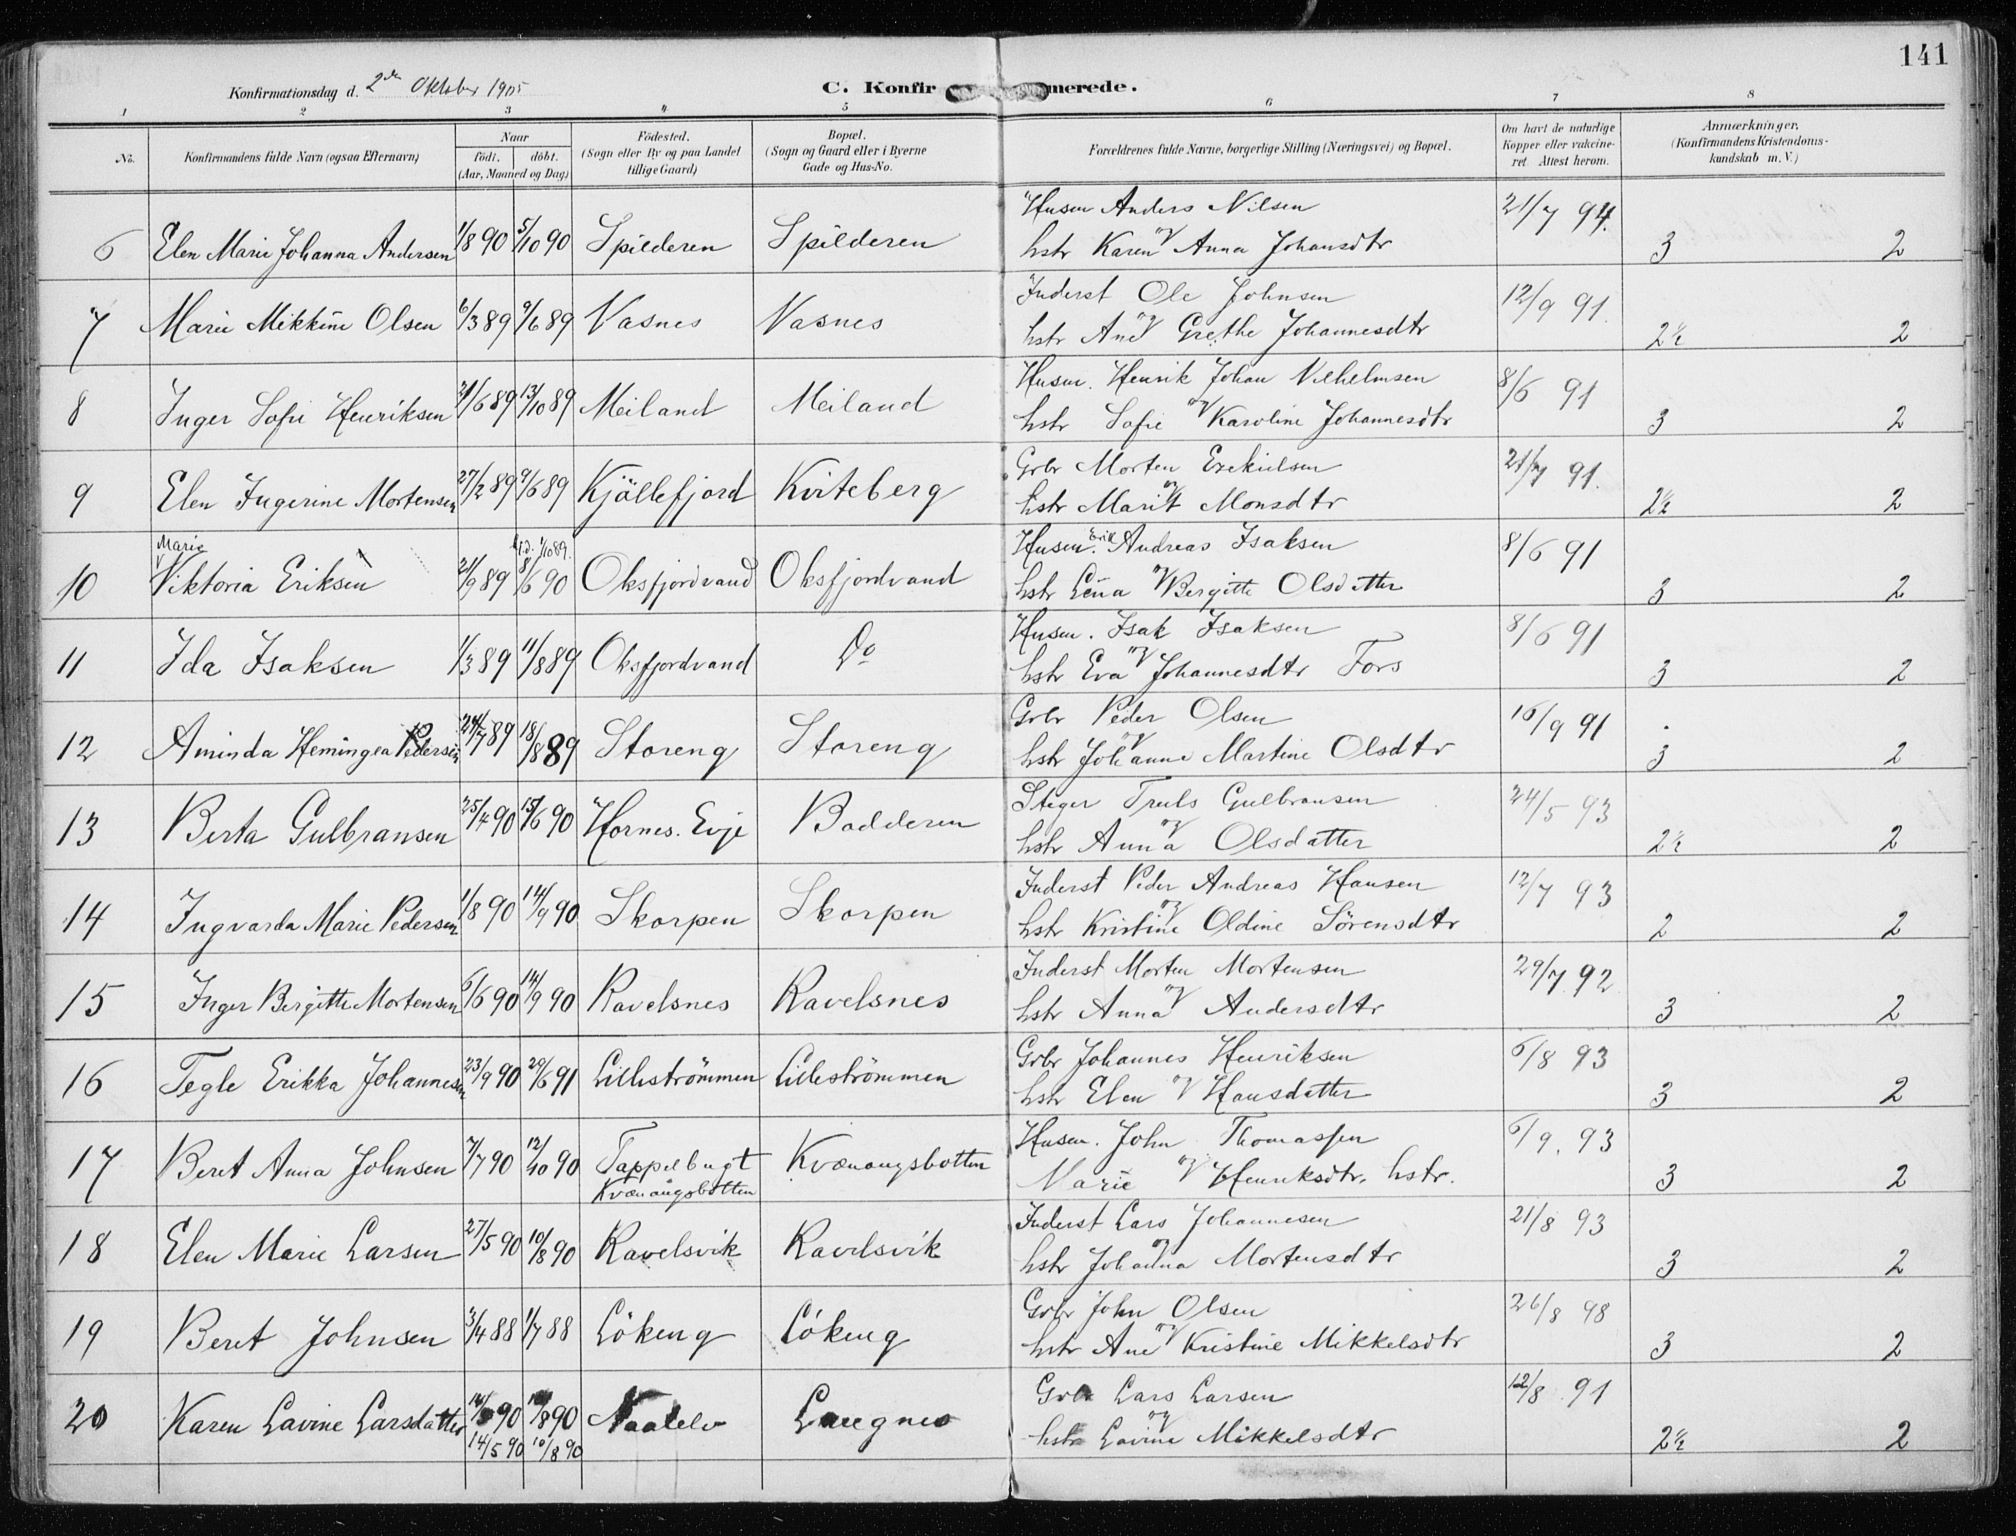 141
Konfirmationsdag d. 2den Oktober 1905
C. Konfir merede.
1 2 3 4 5 6 7 8
No. Konfirmandens fulde Navn (ogsaa Efternavn) Naar födt. döbt. (Aar, Maaned og Dag) Födested. (Sogn eller By og paa Landet tillige Gaard) Bopæl. (Sogn og Gaard eller i Byerne Gade og Hus-No. Forældrenes fulde Navne, borgerlige Stilling (Næringsvei) og Bopæl. Om havt de naturlige Kopper eller vakcineret Attest herom. Anmærkninger. (Konfirmandens Kristendomskundskab m. V.)
Husm Anders Nilsen 21/7 94.
6 Elen Marie Johanna Andersen 1/8 90 5/10 90 Spilderen Spilderen hstr Karen og Anna Johansdtr 3 2
Inderst Ole Johnsen 12/9 91.
7 Marie Mikkine Olsen 6/3 89 9/6 89 Vasnes Vasnes hstr Ane og Grethe Johannesdtr 2½ 2
Husm. Henrik Johan Vilhelmsen 8/6 91
8 Inger Sofie Henriksen 21/6 89 13/10 89 Meiland Meiland hstr Sofie og Karoline Johannesdtr 3 2
Grbr Morten Ezekielsen 21/7 91.
9 Elen Ingerine Mortensen 27/2 89 9/6 89 Kjöllefjord Kviteberg hstr Marit og Monsdtr 2½ 2
Marie hd. 1/10 89. Husm. Erik Andreas Isaksen 8/6 91
10 Viktoria Eriksen 21/9 89 8/6 90 Oksfjordvand Oksfjordvand hstr Lena og Bergitte Olsdatter 3 2
Husm. Isak Isaksen 8/6 91
11 Ida Isaksen 1/3 89 11/8 89 Oksfjordvand Do hstr Eva og Johannesdtr Fors 3 2
Grbr Peder Olsen 16/9 91
12 Aminda Hemingea Pedersen 24/7 89 18/8 89 Storeng Storeng hstr Johanna og Martine Olsdtr 3 2
Steger Truls Gulbransen 24/5 93
13 Berta Gulbransen 25/4 90 15/6 90 Hornes. Evje Badderen hstr Anna og Olsdatter 2½ 2
Inderst Peder Andreas Hansen 12/7 93
14 Ingvarda Marie Pedersen 1/8 90 14/9 90 Skorpen Skorpen hstr Kristine og Oldine Sörensdtr 2 2
Inderst Morten Mortensen 29/7 92
15 Inger Bergitte Mortensen 6/6 90 14/9 90 Ravelsnes Ravelsnes hstr Anna og Andersdtr 3 2
Grbr Johannes Henriksen 6/8 93
16 Tegle Erikka Johannesen 23/9 90 29/6 91 Lilleströmmen Lilleströmmen hstr Elen og Hansdatter 3 2
Husm. John Thomassen 6/9. 93
17 Beret Anna Johnsen 7/7 90 12/10 90 Tappelbugt Kvænangsbotten Kvænangsbotten Marie og Henriksdtr. hstr. 3 2
Inderst Lars Johannesen 21/8 93
18 Elen Marie Larsen 27/5 90 10/8 90 Ravelsvik Ravelsvik hstr Johanna og Mortensdtr 3 2
Grbr John Olsen 26/8 98
19 Beret Johnsen 3/4 88 1/7 88 Lökeng Lökeng hstr Ane og Kristine Mikkelsdtr 3 2
Grbr Lars Larsen 12/8 91
20 Karen Lavine Larsdatter 14/5 90 10/8 90 Naalelv Langnes hstr Lavine og Mikkelsdtr 2½ 2
14/5 90 10/8 90